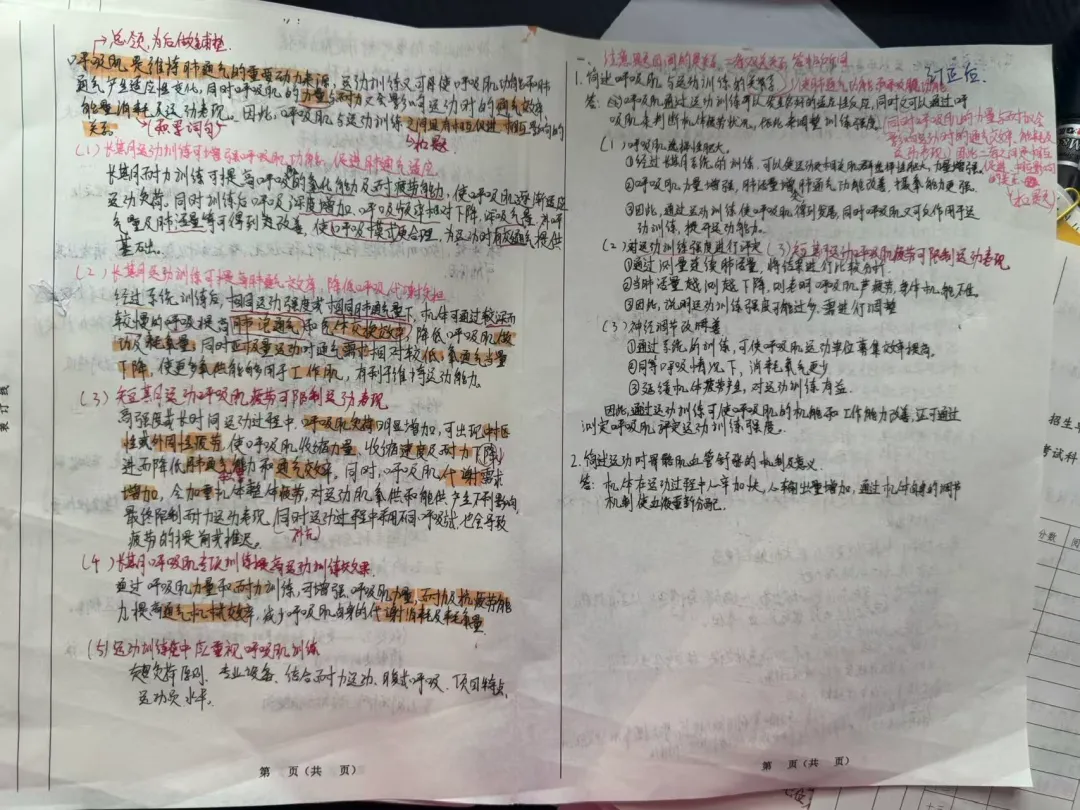 总领,为后做铺垫
呼吸肌是维持肺通气的重要动力来源,运动训练又可使呼吸肌功能和肺
通气产生适应性变化,同时呼吸肌的力量与耐力又会影响运动时的通气效率、
能量消耗及运动表现。因此,呼吸肌与运动训练之间具有相互促进、相互影响的
关系。
(积累词句)
扣题
(1)长期运动训练可增强呼吸肌功能,促进肺通气适应
长期耐力训练可提高呼吸肌的氧化能力及耐疲劳能力,使呼吸肌逐渐适应
运动负荷。同时训练后呼吸深度增加,呼吸频率相对下降,深吸气量、补呼
气量及肺活量等可得到改善,使呼吸模式更合理,为运动时有效通气提供
基础。
(2)长期运动训练可提高肺通气效率,降低呼吸代谢负担
经过系统训练后,相同运动强度或相同肺通气量下,机体可通过较深而
较慢的呼吸提高肺泡通气和气体交换效率,降低呼吸肌做
功及耗氧量,同时亚极量运动时通气需求相对较低,氧通气当量
下降,使更多氧供能够用于工作肌,有利于维持运动能力。
(3)短期运动呼吸肌疲劳可限制运动表现
高强度或长时间运动过程中,呼吸肌负荷明显增加,可出现中枢
性或外周性疲劳,使呼吸肌收缩力量、收缩速度及耐力下降,
进而降低肺通气能力和通气效率。同时,呼吸肌代谢需求
增加,会加重机体整体疲劳,对运动肌氧供和能供产生不利影响,
最终限制耐力运动表现,同时运动过程中采用不同呼吸方式,也会导致
疲劳的提前或推迟。
(4)长期呼吸肌专项训练提高运动训练效果
通过呼吸肌力量和耐力训练,可增强呼吸肌力量、耐力及抗疲劳能
力,提高通气机械效率,减少呼吸肌自身的代谢消耗及耗氧量
(5)运动训练中应重视呼吸肌训练
超负荷原则、专业设备、结合耐力运动、腹式呼吸、项目特点、
运动员水平。
第 页(共 页)
1.简述呼吸肌与运动训练的关系
答:呼吸肌通过运动训练可以发生良好的适应性反应,同时又可以通过呼
吸肌来判断机体疲劳状况,依此来调整训练强度。
同时呼吸肌的力量与耐力又会
影响运动时的通气效率、能耗及
运动表现。因此二者之间具有相互
促进、相互影响
的关系
(扣题)
(1)呼吸肌选择性肥大。
①经过长期系统的训练,可以使运动快肌选择性肥大,力量增强。
②呼吸肌力量增强,肺活量增大,肺通气功能改善,摄氧能力更强。
③因此,通过运动训练使呼吸肌得到发展,同时呼吸肌又可反作用于运
动训练,提升运动能力。
(2)对运动训练强度进行评定
(3)短期运动呼吸肌疲劳可限制运动表现
①通过测量连续肺活量,将结果进行比较分析。
②当肺活量越测越下降,则表明呼吸肌疲劳,身体机能不佳。
③因此,说明运动训练强度可能过多,需进行调整
(3)神经调节改善
①通过系统的训练,可使呼吸肌运动单位募集效率提高。
②同等呼吸情况下,消耗氧气更少
③延缓机体疲劳产生,对运动训练有益.
因此,通过运动训练可使呼吸肌的机能和工作能力改善,还可通过
测定呼吸肌评定运动训练强度。
2.简述运动时骨骼肌血管舒张的机制及意义.
答:机体在运动过程中心率加快,心输出量增加,通过机体自身的调节
机制使血液重新分配。
第 页(共 页)
招生
考试科
分数